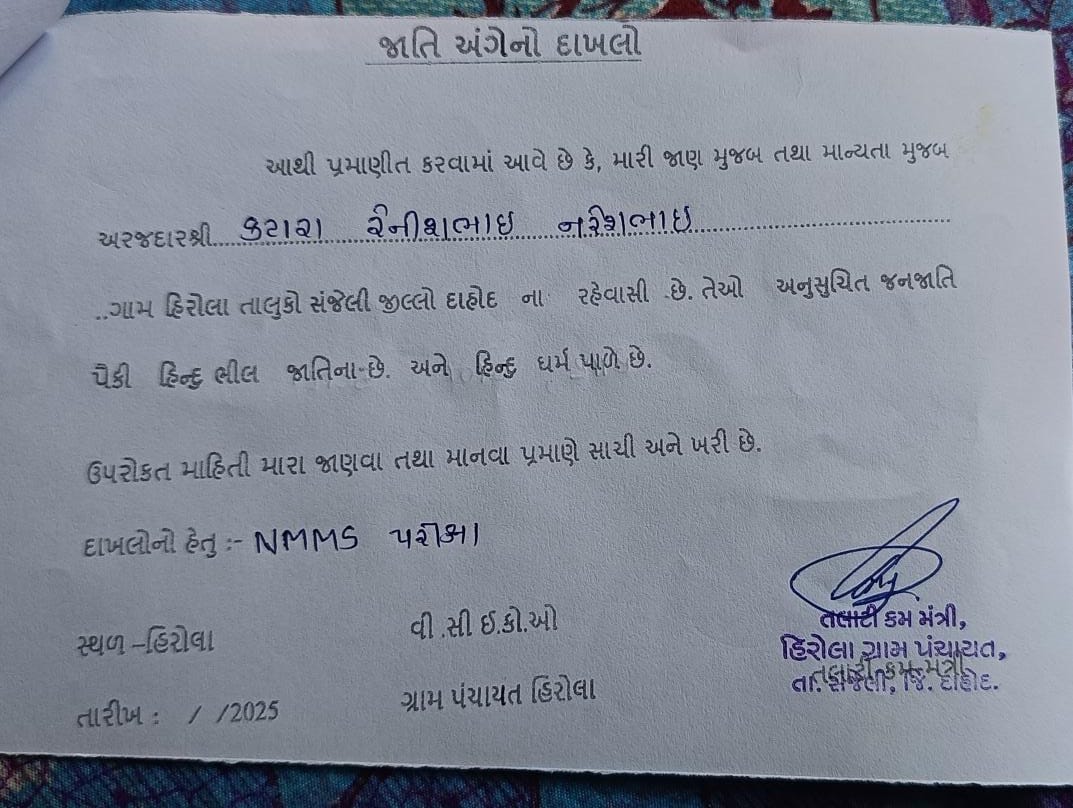 જાતિ અંગેનો દાખલો
આથી પ્રમાણીત કરવામાં આવે છે કે, મારી જાણ મુજબ તથા માન્યતા મુજબ
અરજદારશ્રી કટારા રેનીશભાઇ નરેશભાઇ
..ગામ હિરોલા તાલુકો સંજેલી જીલ્લો દાહોદ ના રહેવાસી છે. તેઓ અનુસુચિત જનજાતિ
પૈકી હિન્દુ ભીલ જાતિના છે. અને હિન્દુ ધર્મ પાળે છે.
ઉપરોકત માહિતી મારા જાણવા તથા માનવા પ્રમાણે સાચી અને ખરી છે.
દાખલોનો હેતુ :- NMMS પરીક્ષા
સ્થળ -હિરોલા
વી .સી ઈ.કો.ઓ
તલાટી કમ મંત્રી,
હિરોલા ગ્રામ પંચાયત,
તલાટી કમ મંત્રી
તા. સંજેલી, જિ. દાહોદ.
ગ્રામ પંચાયત હિરોલા
તારીખ : / /2025